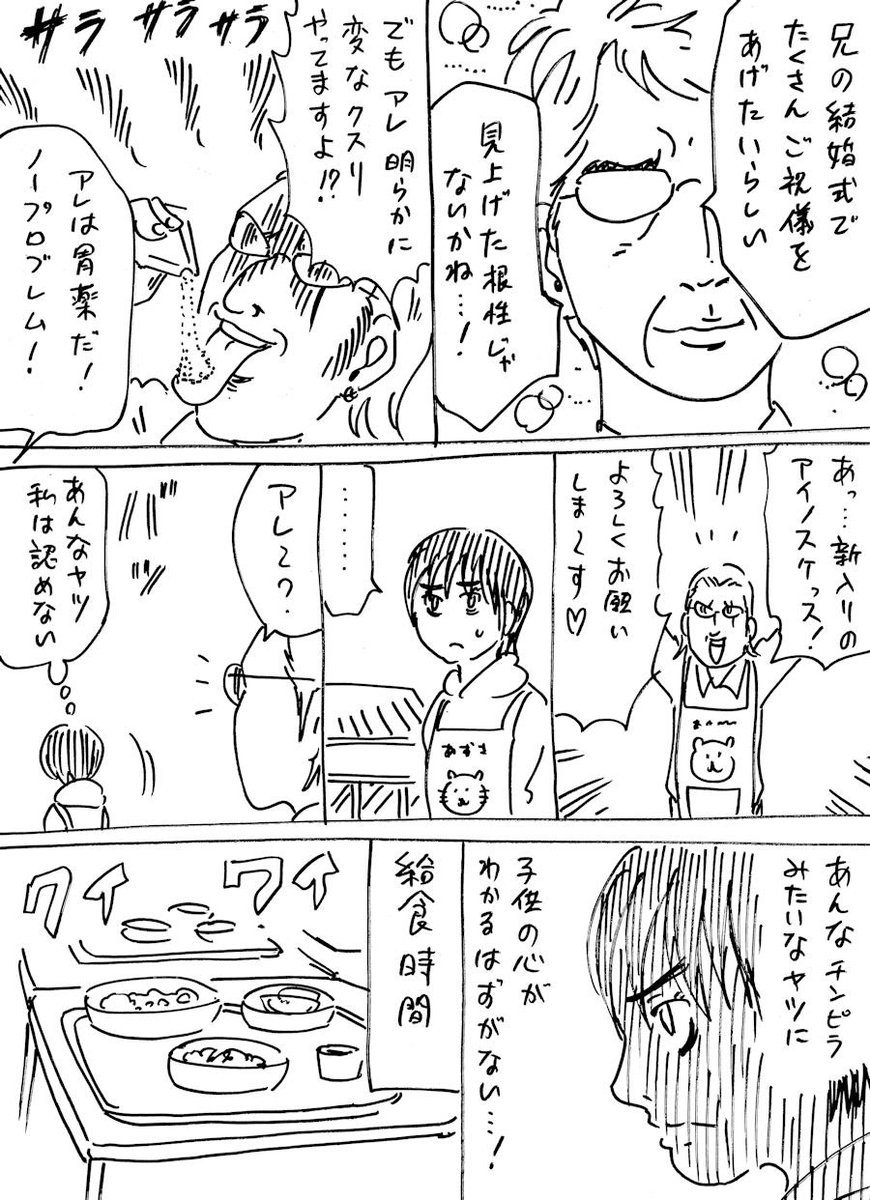 兄の結婚式で
たくさんご祝儀を
あげたいらしい
見上げた根性じゃ
ないかね…!
でもアレ明らかに
変なクスリ
やってますよ!?
サラサラサラ
アレは胃薬だ!
ノープロブレム!
あっ…新入りの
アイノスケっス!
よろしくお願い
しま～す♡
………
あずさ
アレ～?
あんなヤツ
私は認めない
あんなチンピラ
みたいなヤツに
子供の心が
わかるはずがない…!
給食時間
ワイワイ